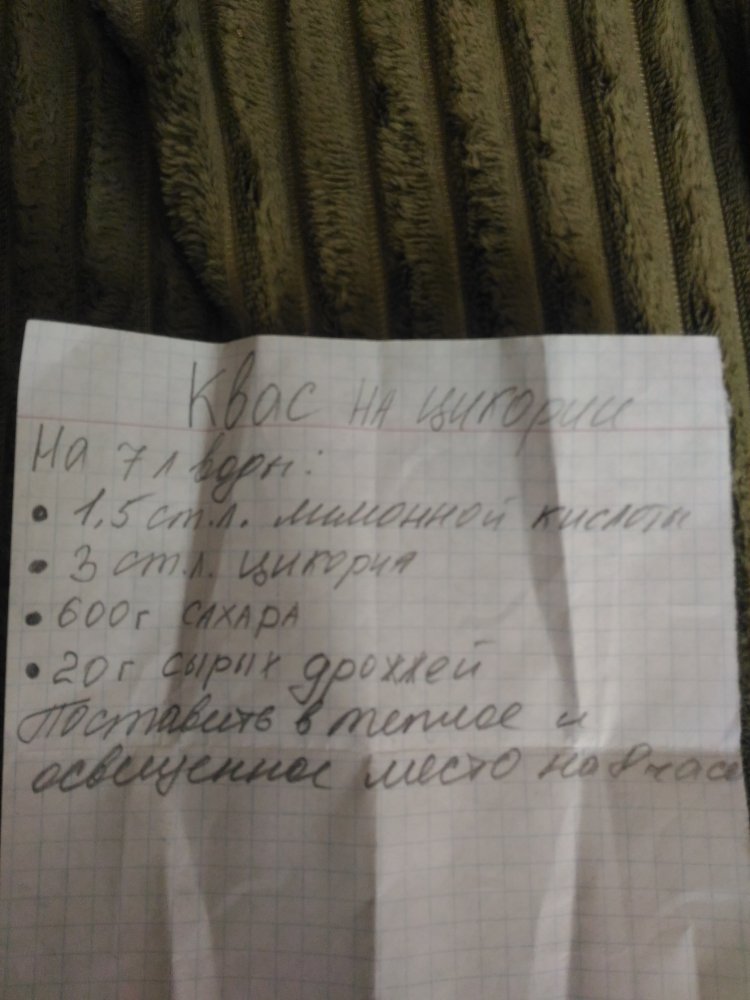 Квас на цикории
На 7 л воды:
• 1,5 ст.л. лимонной кислоты
• 3 ст.л. цикория
• 600г сахара
• 20г сырых дрожжей
Поставить в теплое и
освещенное место на 8 часов